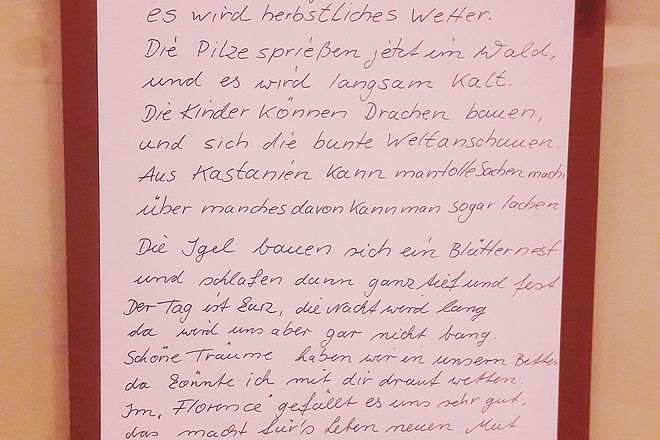 es wird herbstliches Wetter.
Die Pilze sprießen jetzt im Wald,
und es wird langsam Kalt.
Die Kinder Können Drachen bauen,
und sich die bunte Welt anschauen.
Aus Kastanien Kann man tolle Sachen mach
über manches davon Kann man sogar lachen
Die Igel bauen sich ein Blätternest
und schlafen dann ganz tief und fest
Der Tag ist Kurz, die Nacht wird lang
da wird uns aber gar nicht bang.
Schöne Träume haben wir in unsern Bette
da Könnte ich mit dir drauf wetten.
Im "Florence" gefällt es uns sehr gut,
das macht für's Leben neuen Mut.